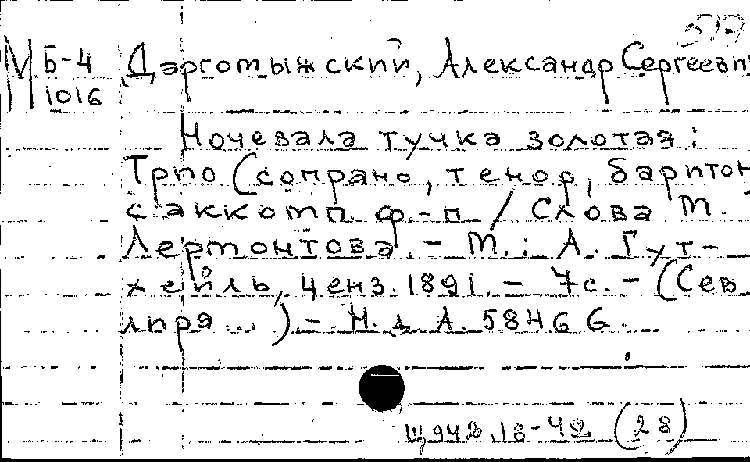 517
М Б-4 Даргомыжский, Александр Сергееви
1016
Ночевала тучка золотая:
Трио (сопрано, тенор, баритон
с акком. ф-п / Слова М.
Лермонтова. - М.: А. Гут-
хейль, ценз. 1891. - 7с. - (Сев.
лира ... ) - Н. д. А. 5846 G.
Щ942.18-42 (28)